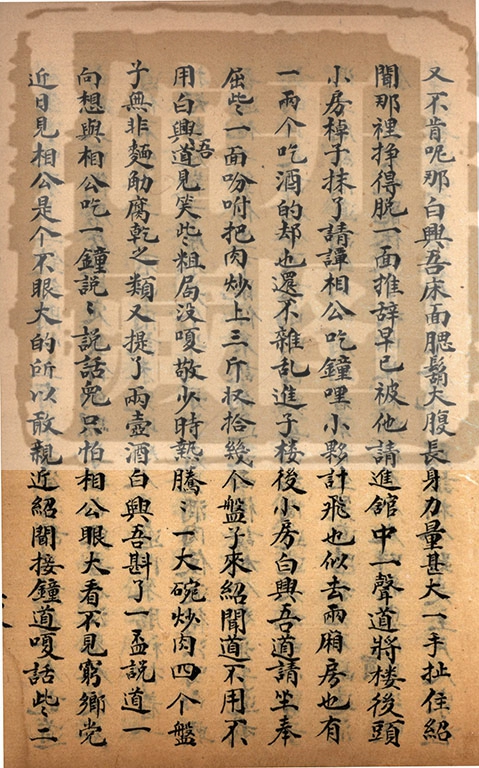 又不肯呢那白興吾床面腮鬍大腹長身力量甚大一手扯住紹
聞那裡挣得脱一面推辞早已被他請進舘中一聲道將楼後頭
小房棹子抹了請譚相公吃鐘哩小夥計飛也似去兩厢房也有
一兩个吃酒的却也還不雜乱進了楼後小房白興吾道請坐奉
屈些〻一面吩咐把肉炒上三斤収拾幾个盤子來紹聞道不用不
用白興吾道見笑些〻粗局没嗄敬少時熱騰〻一大碗炒肉四个盤
子無非麵觔腐乾之類又提了兩壺酒白興吾斟了一盃説道一
向想與相公吃一鐘説〻説話兒只怕相公眼大看不見窮鄉党
近日見相公是个不眼大的所以敢親近紹聞接鐘道嗄話些〻二